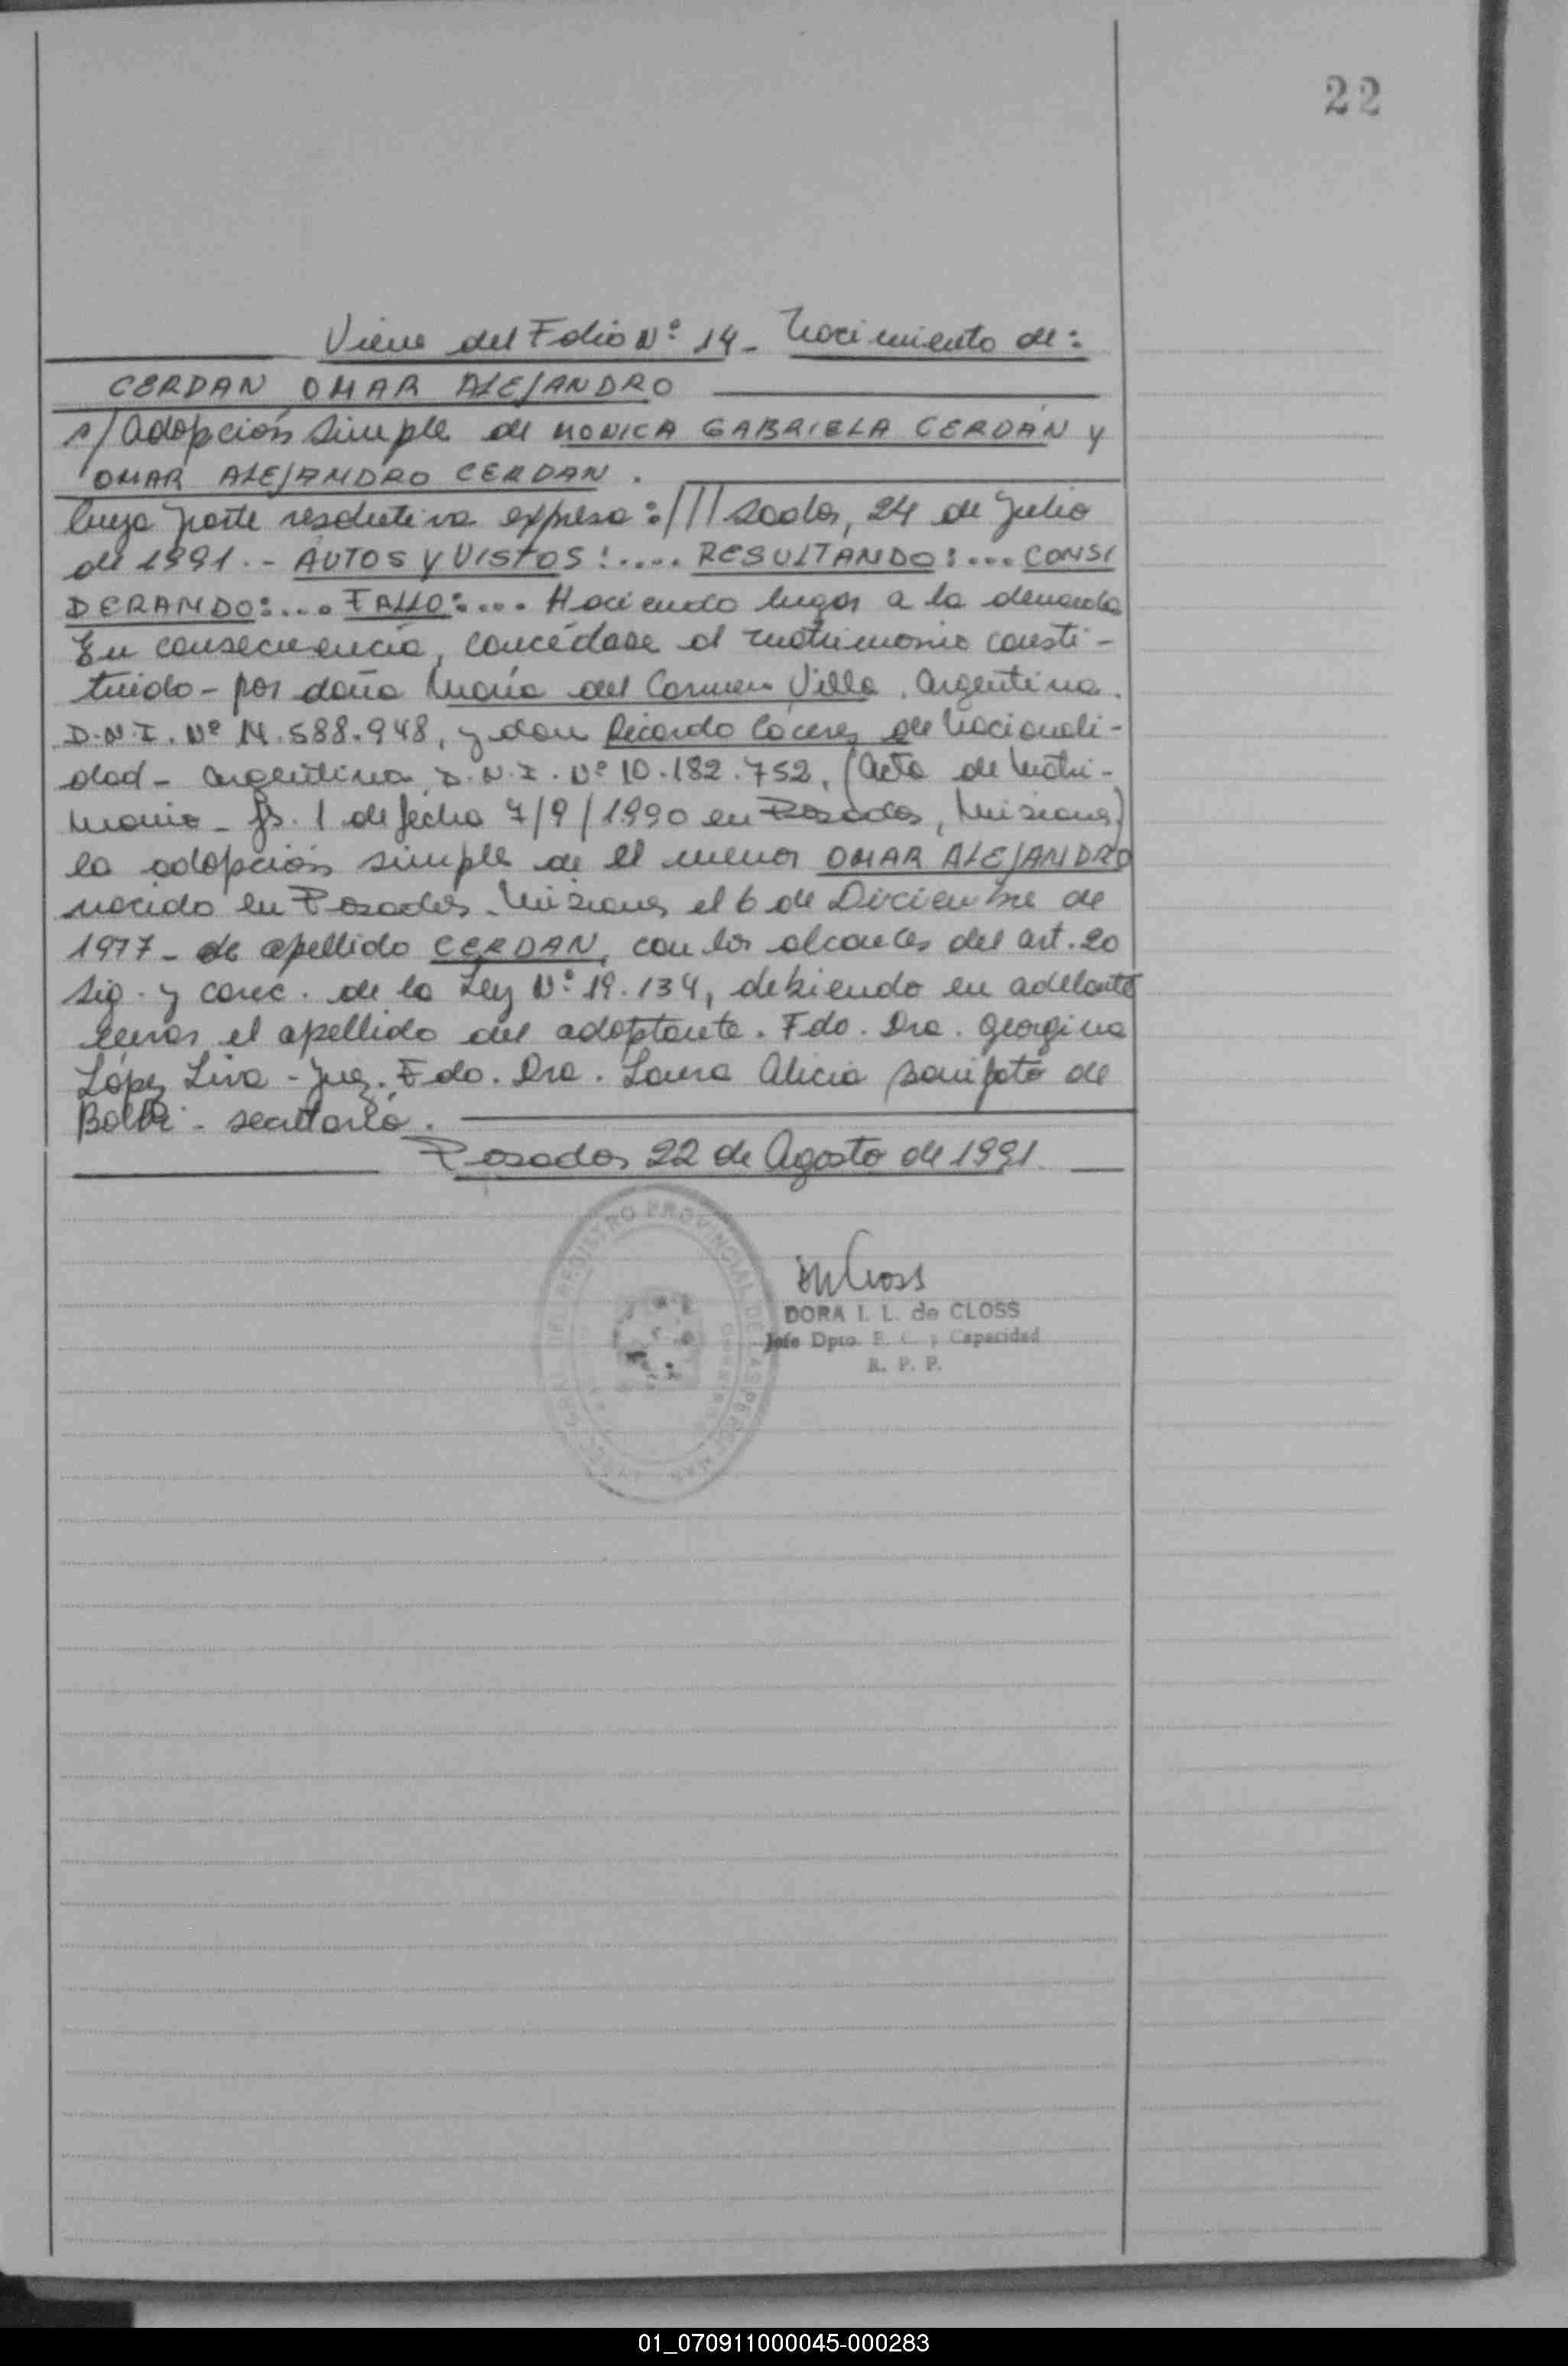 22
Viene del Folio Nº 14 - Nacimiento de:
CERDAN OMAR ALEJANDRO
s/ Adopción simple de MONICA GABRIELA CERDÁN y
OMAR ALEJANDRO CERDAN.
cuya parte resolutiva expresa: ///sadas, 24 de Julio
de 1991.- AUTOS Y VISTOS:.... RESULTANDO:... CONSI
DERANDO:... FALLO:.... Haciendo lugar a la demanda
En consecuencia, concédase al matrimonio consti-
tuido - por doña María del Carmen Villa, argentina.
D.N.I. Nº 14.588.948, y don Ricardo Cáceres de Nacionali-
dad - argentina, D.N.I. Nº 10.182.752, (Acta de Matri-
monio - fs. 1 de fecha 7/9/1990 en Posadas, Misiones)
la adopción simple de el menor OMAR ALEJANDRO
nacido en Posadas - Misiones el 6 de Diciembre de
1977 - de apellido CERDAN, con los alcances del art. 20
sig. y conc. de la Ley Nº 19.134, debiendo en adelante
llevar el apellido del adoptante. Fdo. Dra. Georgina
López Liva - Juez. Fdo. Dra. Laura Alicia de
secretaria.
Posadas 22 de Agosto de 1991
REGISTRO PROVINCIAL DE LAS PERSONAS
DORA I. L. de CLOSS
Jefe Dpto. E. C. y Capacidad
R. P. P.
01_070911000045-000283